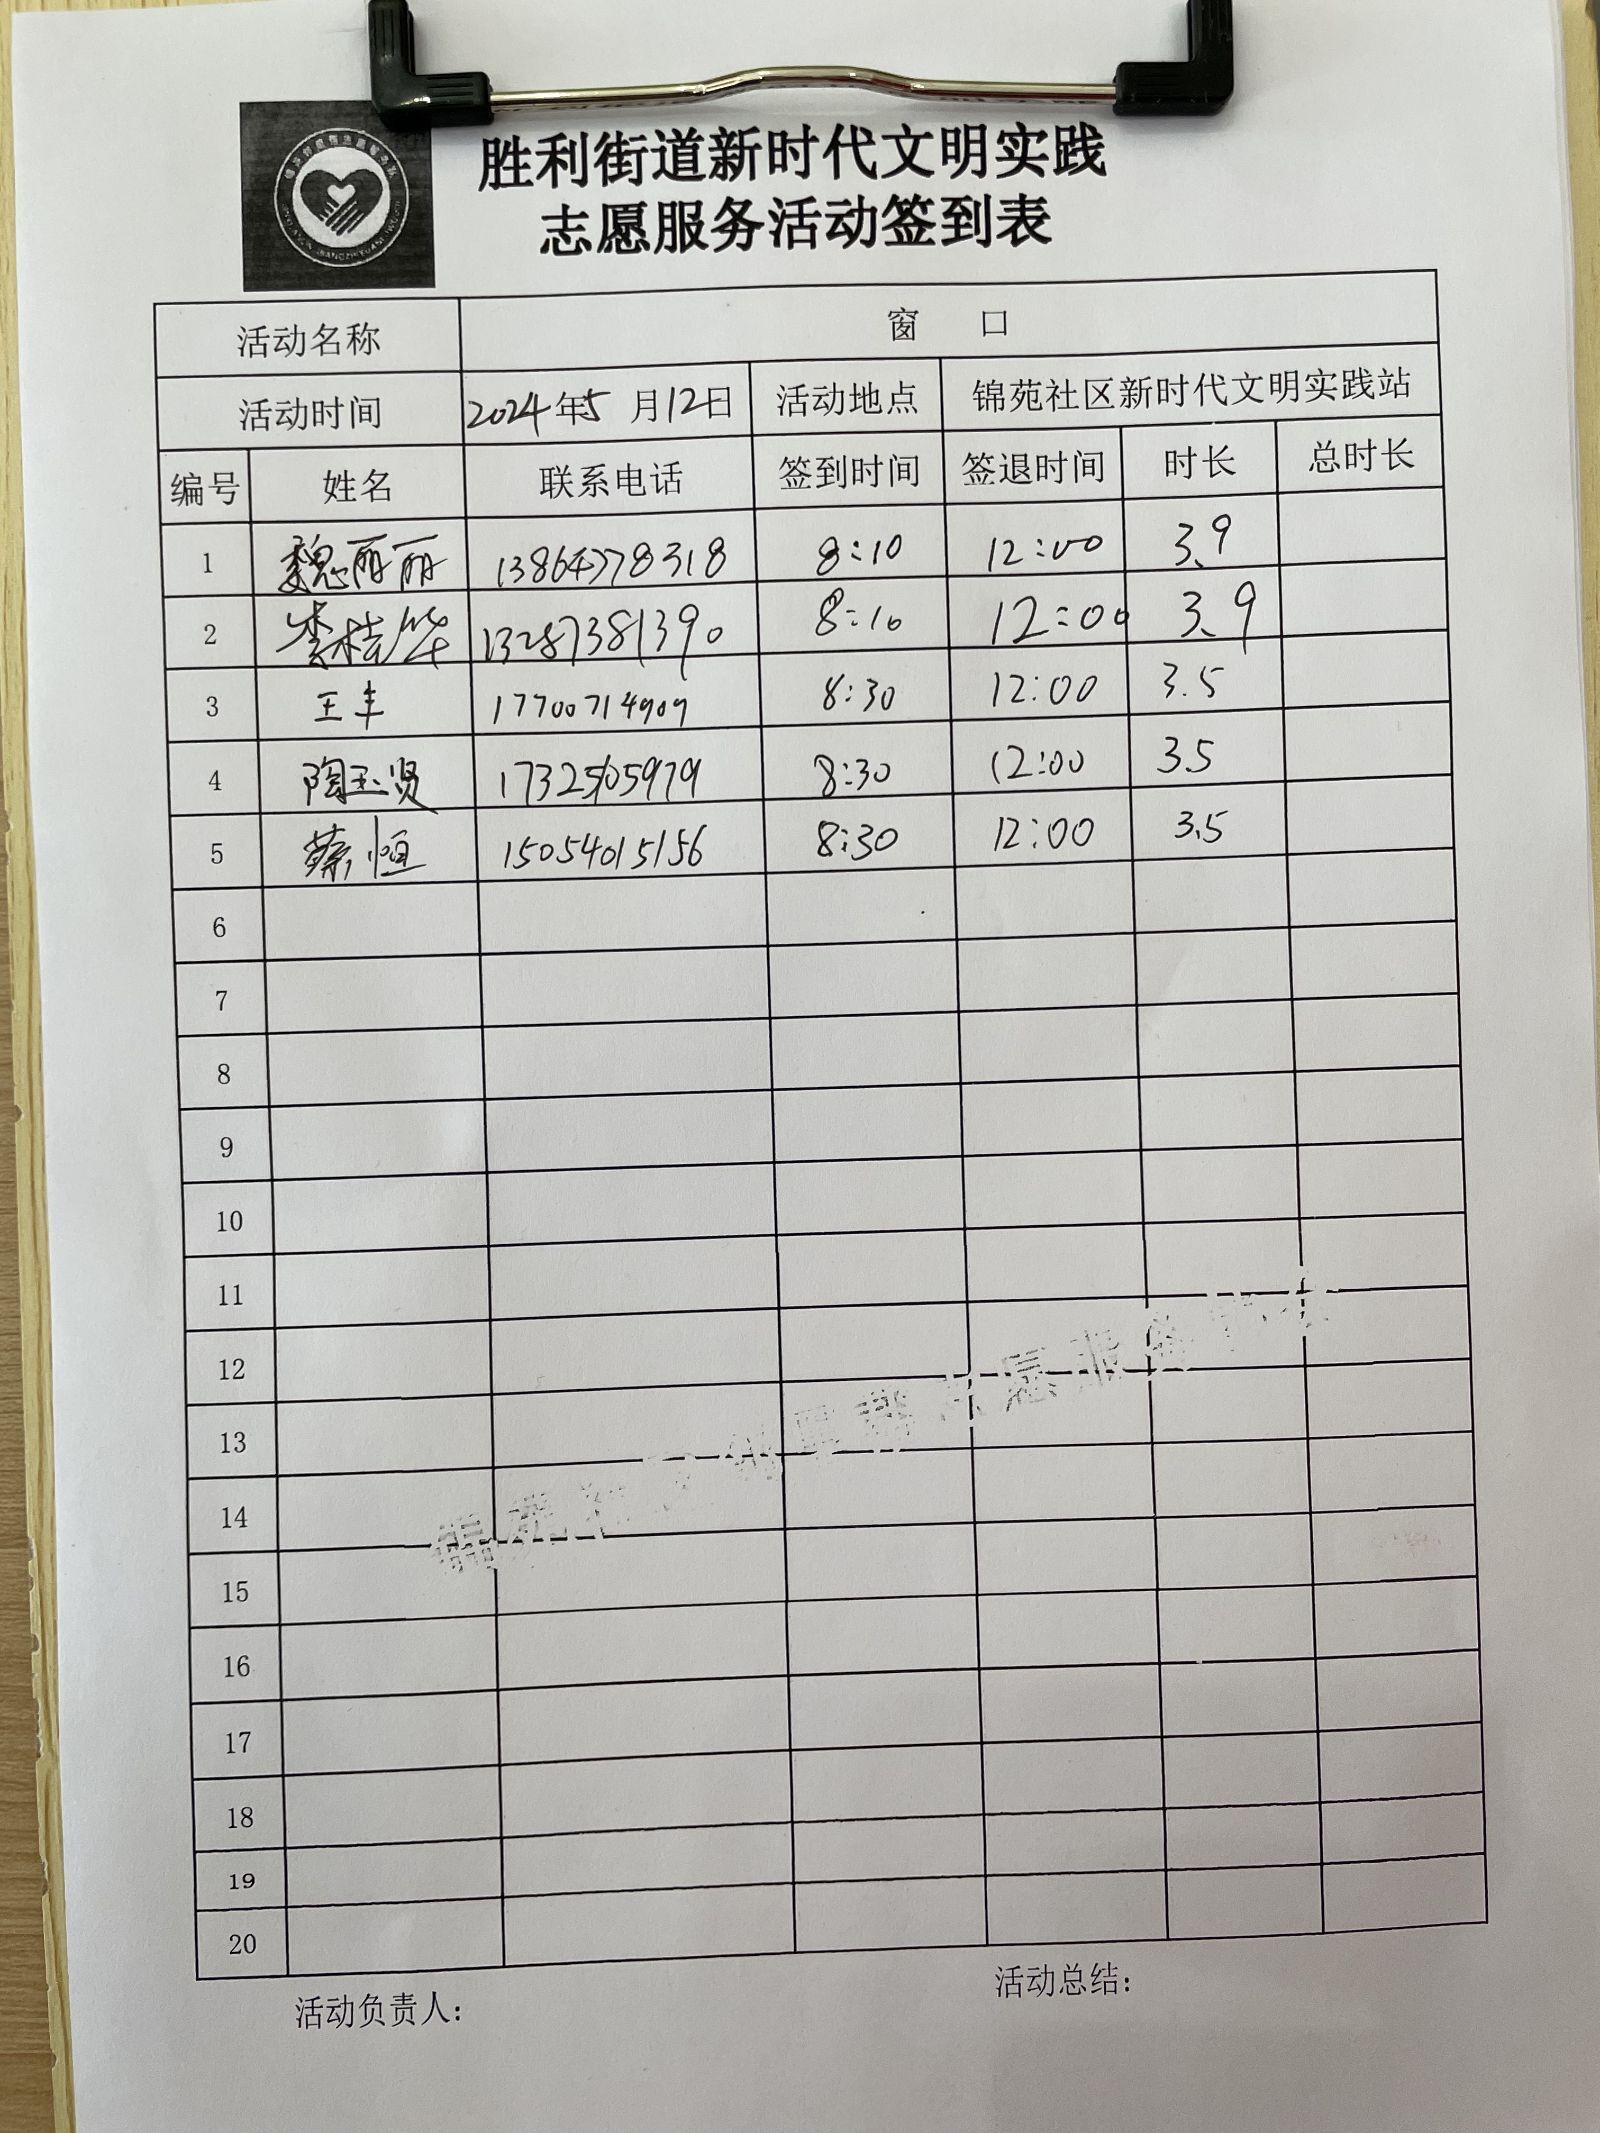 胜利街道新时代文明实践
志愿服务活动签到表
活动名称 窗 口
活动时间 2024年5月12日 活动地点 锦苑社区新时代文明实践站
编号 姓名 联系电话 签到时间 签退时间 时长 总时长
1 魏丽丽 13864778318 8:10 12:00 3.9
2 李桂华 13287381390 8:10 12:00 3.9
3 王丰 17700714909 8:30 12:00 3.5
4 陶玉贤 17325105979 8:30 12:00 3.5
5 蔡恒 15054015156 8:30 12:00 3.5
6
7
8
9
10
11
12
13
14
15
16
17
18
19
20
活动负责人: 活动总结: